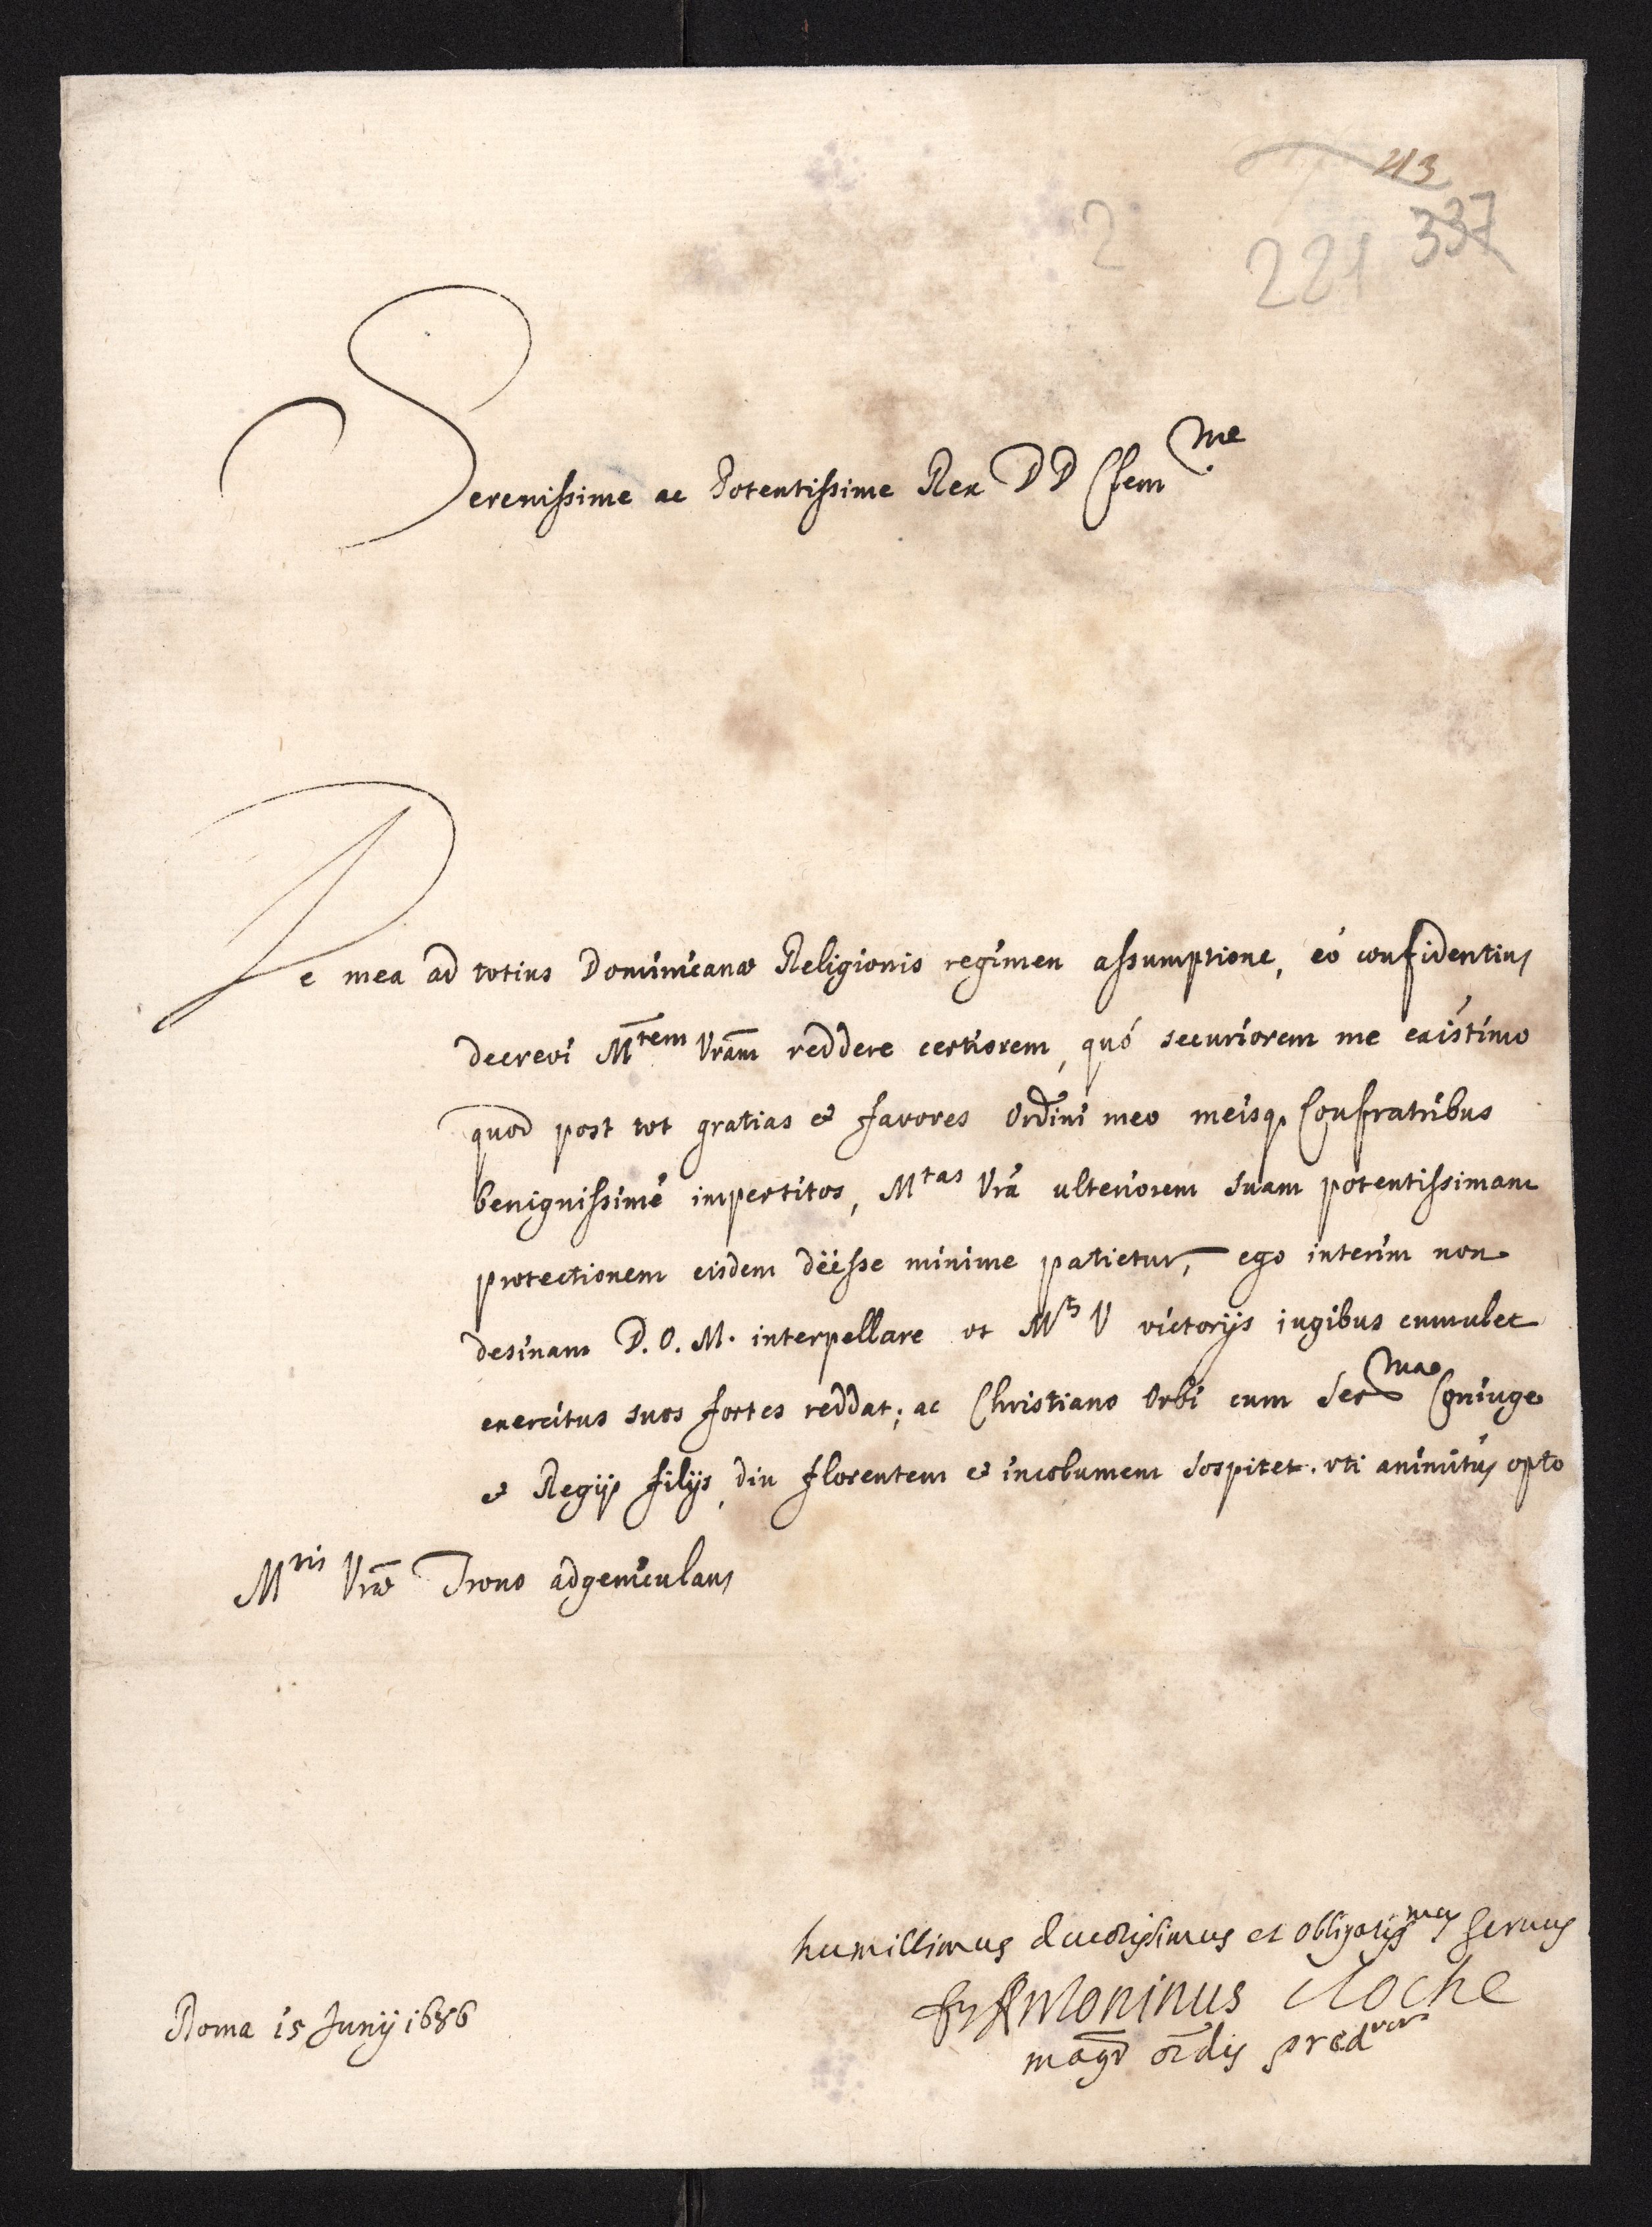 413
2 221 337
Serenissime ac Potentissime Rex DD Clem^me
De mea ad totius Dominicanæ Religionis regimen assumptione, eó confidentius
decrevi M^tem Vram reddere certiorem, quó securiorem me existimo
quod post tot gratias et favores Ordini meo meisq. Confratribus
benignissimè impertitos, M^tas Vra ulteriorem suam potentissimam
protectionem eisdem deësse minime patietur, ego interim non
desinam D. O. M. interpellare ut M^ts V victorijs iugibus cumulet
exercitus suos fortes reddat; ac Christiano Orbi cum Ser^ma Coniuge
et Regijs filijs, diu florentem et incolumem sospitet. uti animitus opto
M^tis Vræ Trono adgeniculans
humillimus devotissimus et obligatiss^mus servus
fr Antoninus Cloche
mag^r ordis præd^rum
Roma 15 Junij 1686